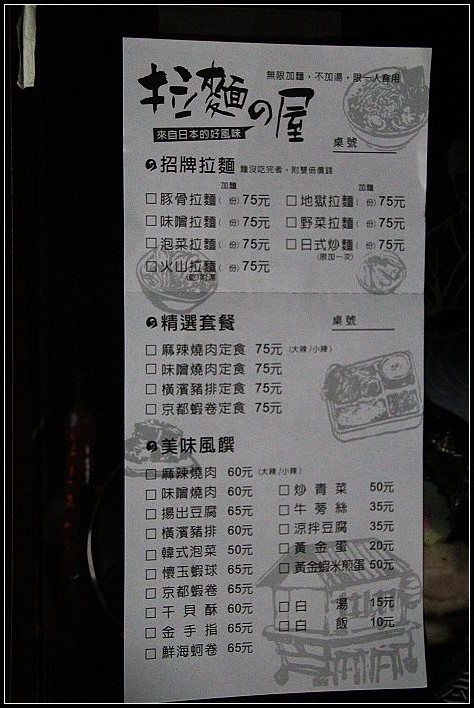 無限加麵，不加湯，限一人食用
拉麵の屋
來自日本的好風味
桌號
招牌拉麵 麵沒吃完者，附雙倍價錢
加麵 加麵
□豚骨拉麵( 份)75元 □地獄拉麵( 份)75元
□味噌拉麵( 份)75元 □野菜拉麵( 份)75元
□泡菜拉麵( 份)75元 □日式炒麵( 份)75元
(限加一次)
□火山拉麵( 份)75元
精選套餐 桌號
□麻辣燒肉定食 75元 (大辣/小辣)
□味噌燒肉定食 75元
□橫濱豬排定食 75元
□京都蝦卷定食 75元
美味風饌
□麻辣燒肉 60元 (大辣/小辣)
□味噌燒肉 60元 □炒青菜 50元
□揚出豆腐 65元 □牛蒡絲 35元
□橫濱豬排 60元 □涼拌豆腐 35元
□韓式泡菜 50元 □黃金蛋 20元
□懷玉蝦球 65元 □黃金蝦米煎蛋 50元
□京都蝦卷 65元
□干貝酥 60元 □白湯 15元
□金手指 65元 □白飯 10元
□鮮海蚵卷 65元